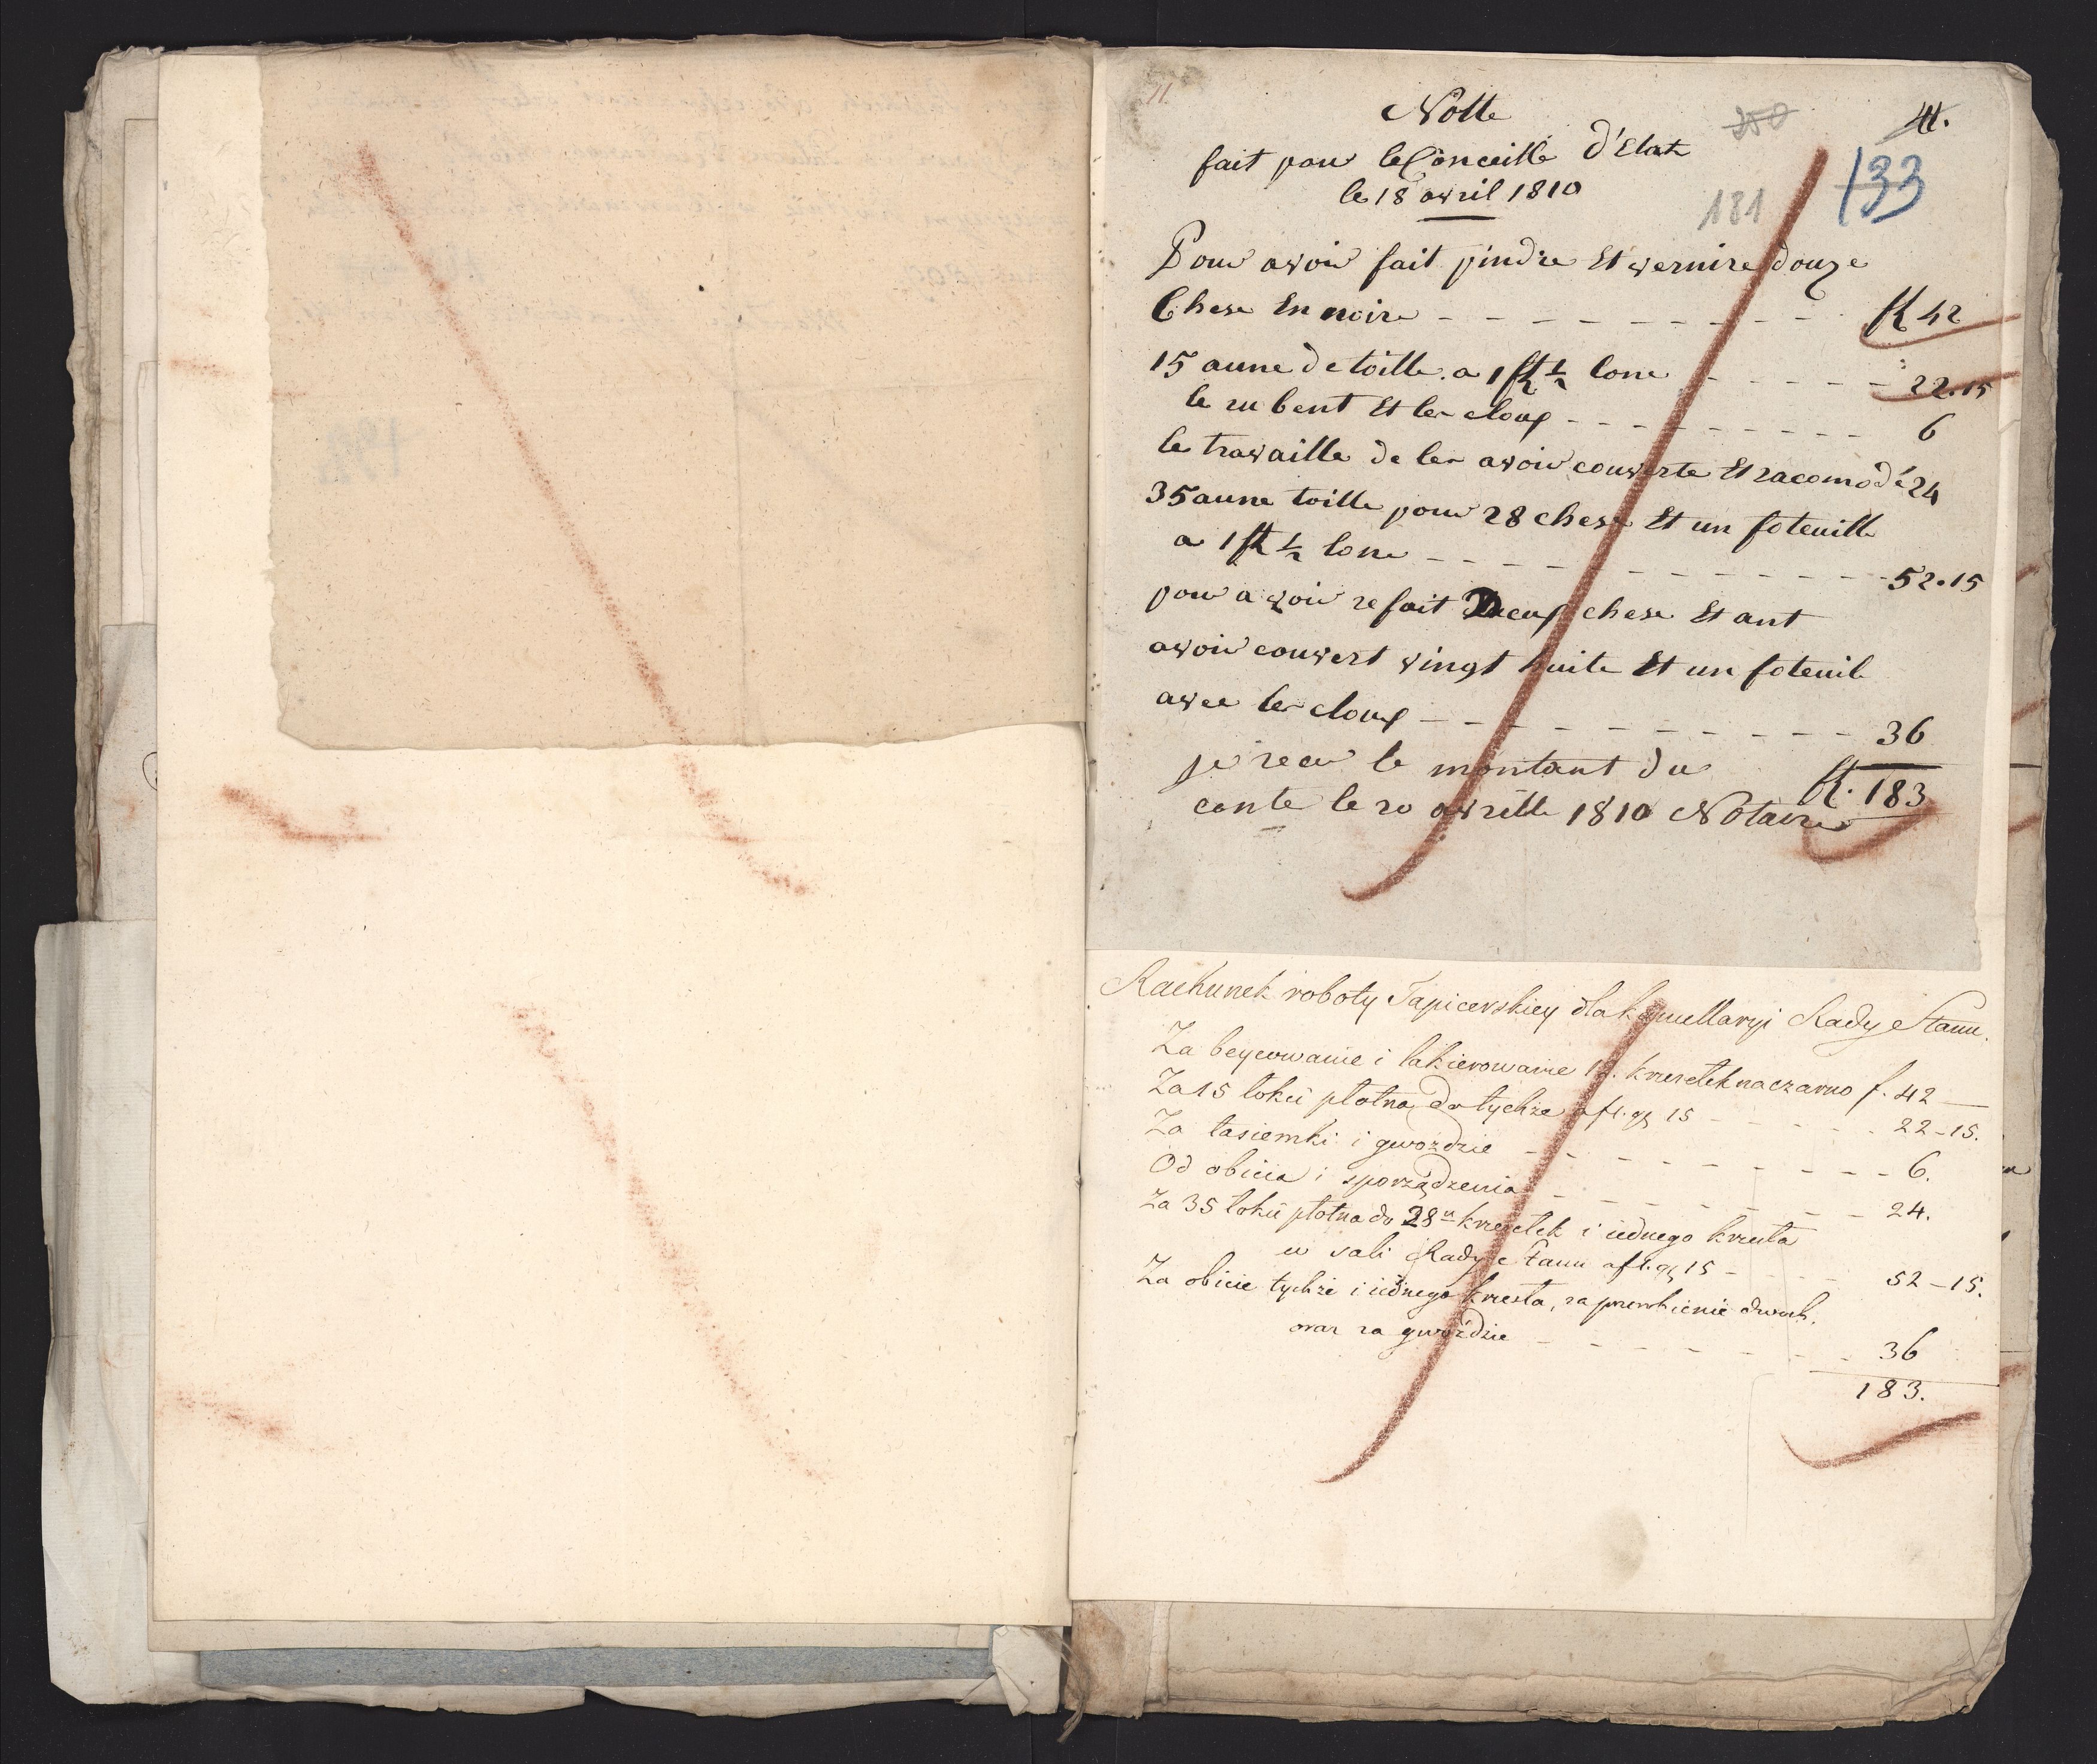 11.
Notte
fait pour le Conceille d'Etat
le 18 avril 1810
250
41.
133
181
Pour avoir fait pindre Et vernire douze
Chese En noire - - - - - - - - - fl 42
15 aune de toille a 1 fl ½ lone - - - - - - 22.15
le rubent Et les clouf - - - - - - - - - 6
le travaille de les avoir couverte Et racomodé 24
35 aune toille pour 28 chese Et un foteuille
a 1 fl ½ lone - - - - - - - - - - - - 52.15
pour avoir refait Deeuf chese Et ant
avoir couvert vingt huite Et un foteuil
avec les clouf - - - - - - - - - - - 36
je recu le montant du fl. 183
conte le 20 avrille 1810 Notaire
Rachunek roboty Tapicerskiey dla kancellaryi Rady Stanu.
Za beycowanie i lakierowanie 12. krzesełek na czarno f. 42 —
Za 15 łokci płotna do tychże a fl. 1 gr 15 - - - - - 22-15.
Za tasiemki i gwozdzie - - - - - - - - - - 6.
Od obicia i sporządzenia - - - - - - - - 24.
Za 35 łokci płotna do 28u krzesełek i iednego krzesła
w sali Rady Stanu a fl. 1 gr 15 - - - - - 52-15.
Za obicie tychże i iednego krzesła, za przerobienie dwoch,
oraz za gwoździe - - - - - - - - - 36
183.